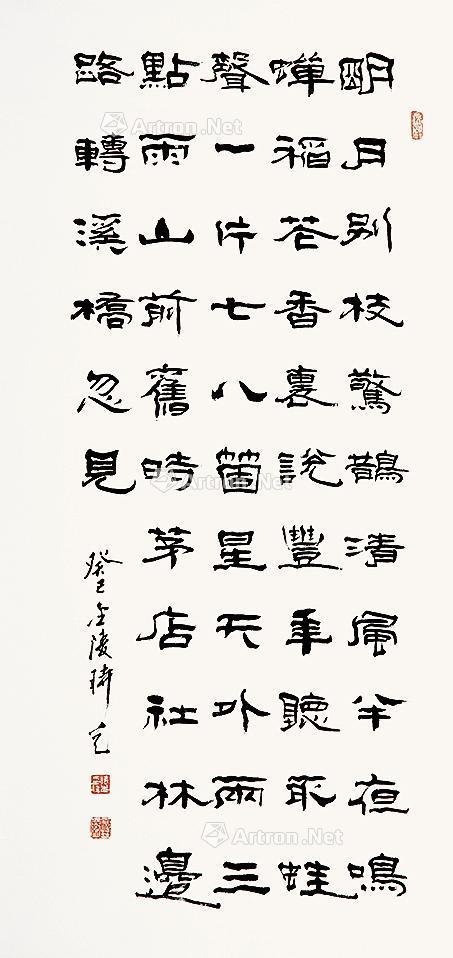 明月別枝驚鵲清風半夜鳴
蟬稻花香裏說豐年聽取蛙
聲一片七八箇星天外兩三
點雨山前舊時茅店社林邊
路轉溪橋忽見
癸巳金陵
Artron.Net
Artron.Net
Artron.Net